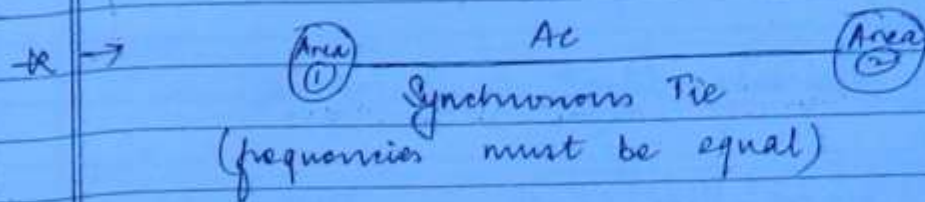 * → Area ① AC Area ②
Synchronous Tie
(frequencies must be equal)